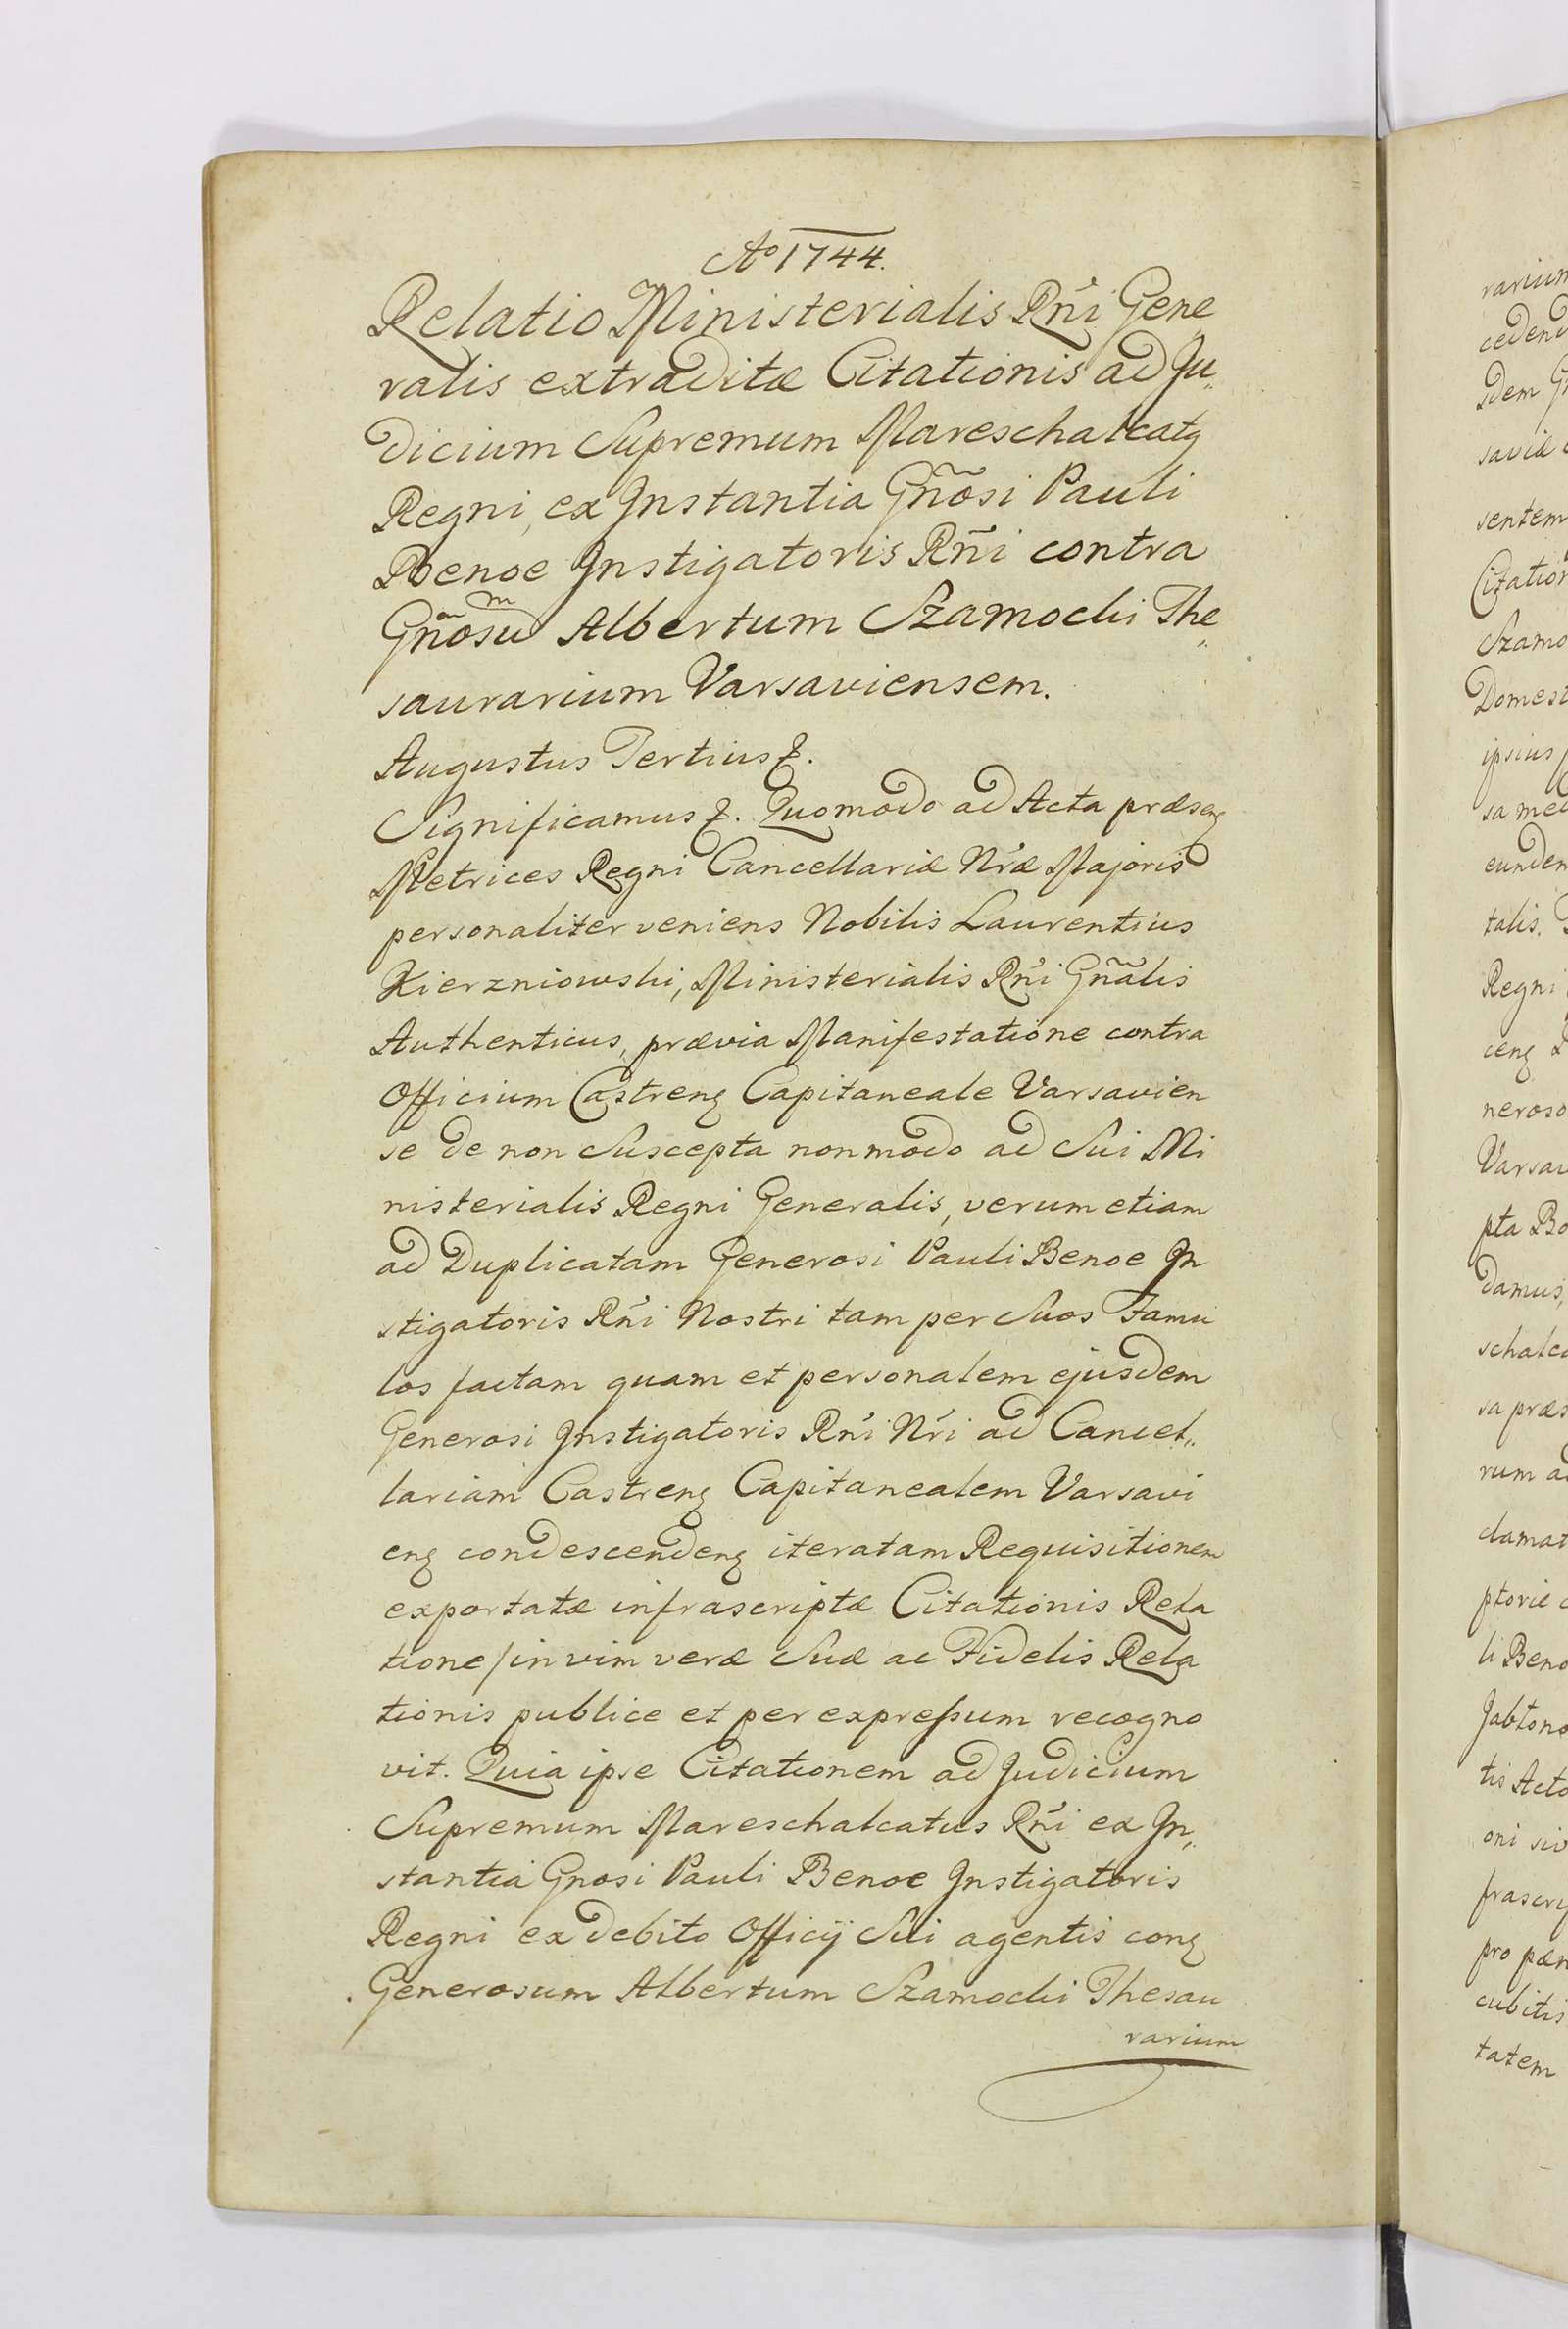 Ao 1744.
Relatio Ministerialis Rñi Gene„
ralis extraditæ Citationis ad Ju„
dicium Supremum Mareschalcatq
Regni, ex Instantia Gñosi Pauli
Benoe Instigatoris Rñi contra
Gñosum Albertum Szamocki The„
saurarium Varsaviensem.
Augustus Tertius &.
Significamus &. Quomodo ad Acta præseng
Metrices Regni Cancellariæ Nræ Majoris
personaliter veniens Nobilis Laurentius
Kierzniowski, Ministerialis Rñi Gñalis
Authenticus, prævia Manifestatione contra
Officium Castreng Capitaneale Varsavien
se de non Suscepta non modo ad Sui Mi
nisterialis Regni Generalis, verum etiam
ad Duplicatam Generosi Pauli Benoe In
stigatoris Rñi Nostri tam per Suos Famu
los factam quam et personalem ejusdem
Generosi Instigatoris Rñi Nri ad Cancel„
lariam Castreng Capitanealem Varsavi
eng condescendeng iteratam Requisitionem
exportatæ infrascriptæ Citationis Rela
tione/ in vim veræ Suæ ac Fidelis Rela
tionis publice et per expressum recogno
vit. Quia ipse Citationem ad Judicium
Supremum Mareschalcatus Rñi ex In„
stantia Gnosi Pauli Benoe Instigatoris
Regni ex debito Officij Sui agentis cong
Generosum Albertum Szamocki Thesau
rarium
rarium
cedend
dem
saviæ
sentem
Citation
Szamo
Domest
ipsius
sa med
eundem
talis.
Regni
ceng
neroso
Varsav
pta Bo
damus,
schalca
sa præs
rum ad
clamat
ptoriæ
li Beno
Jablono
tis Acto
oni siv
frascrip
pro pæn
cubitis
tatem